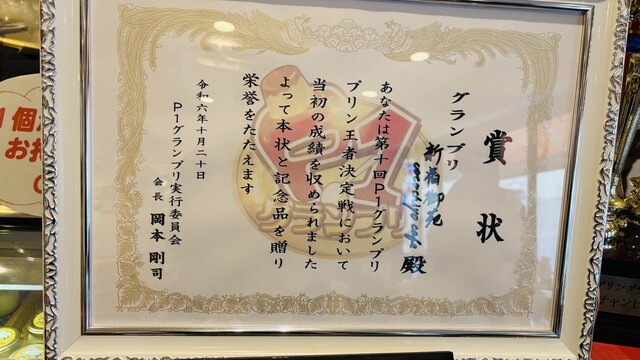 賞状
グランプリ
新宿御苑
殿
あなたは第十回P1グランプリ
プリン王者決定戦において
当初の成績を収められました
よって本状と記念品を贈り
栄誉をたたえます
令和六年十月二十日
P1グランプリ実行委員会
会長 岡本 剛司
P1
グランプリ
1個
お持